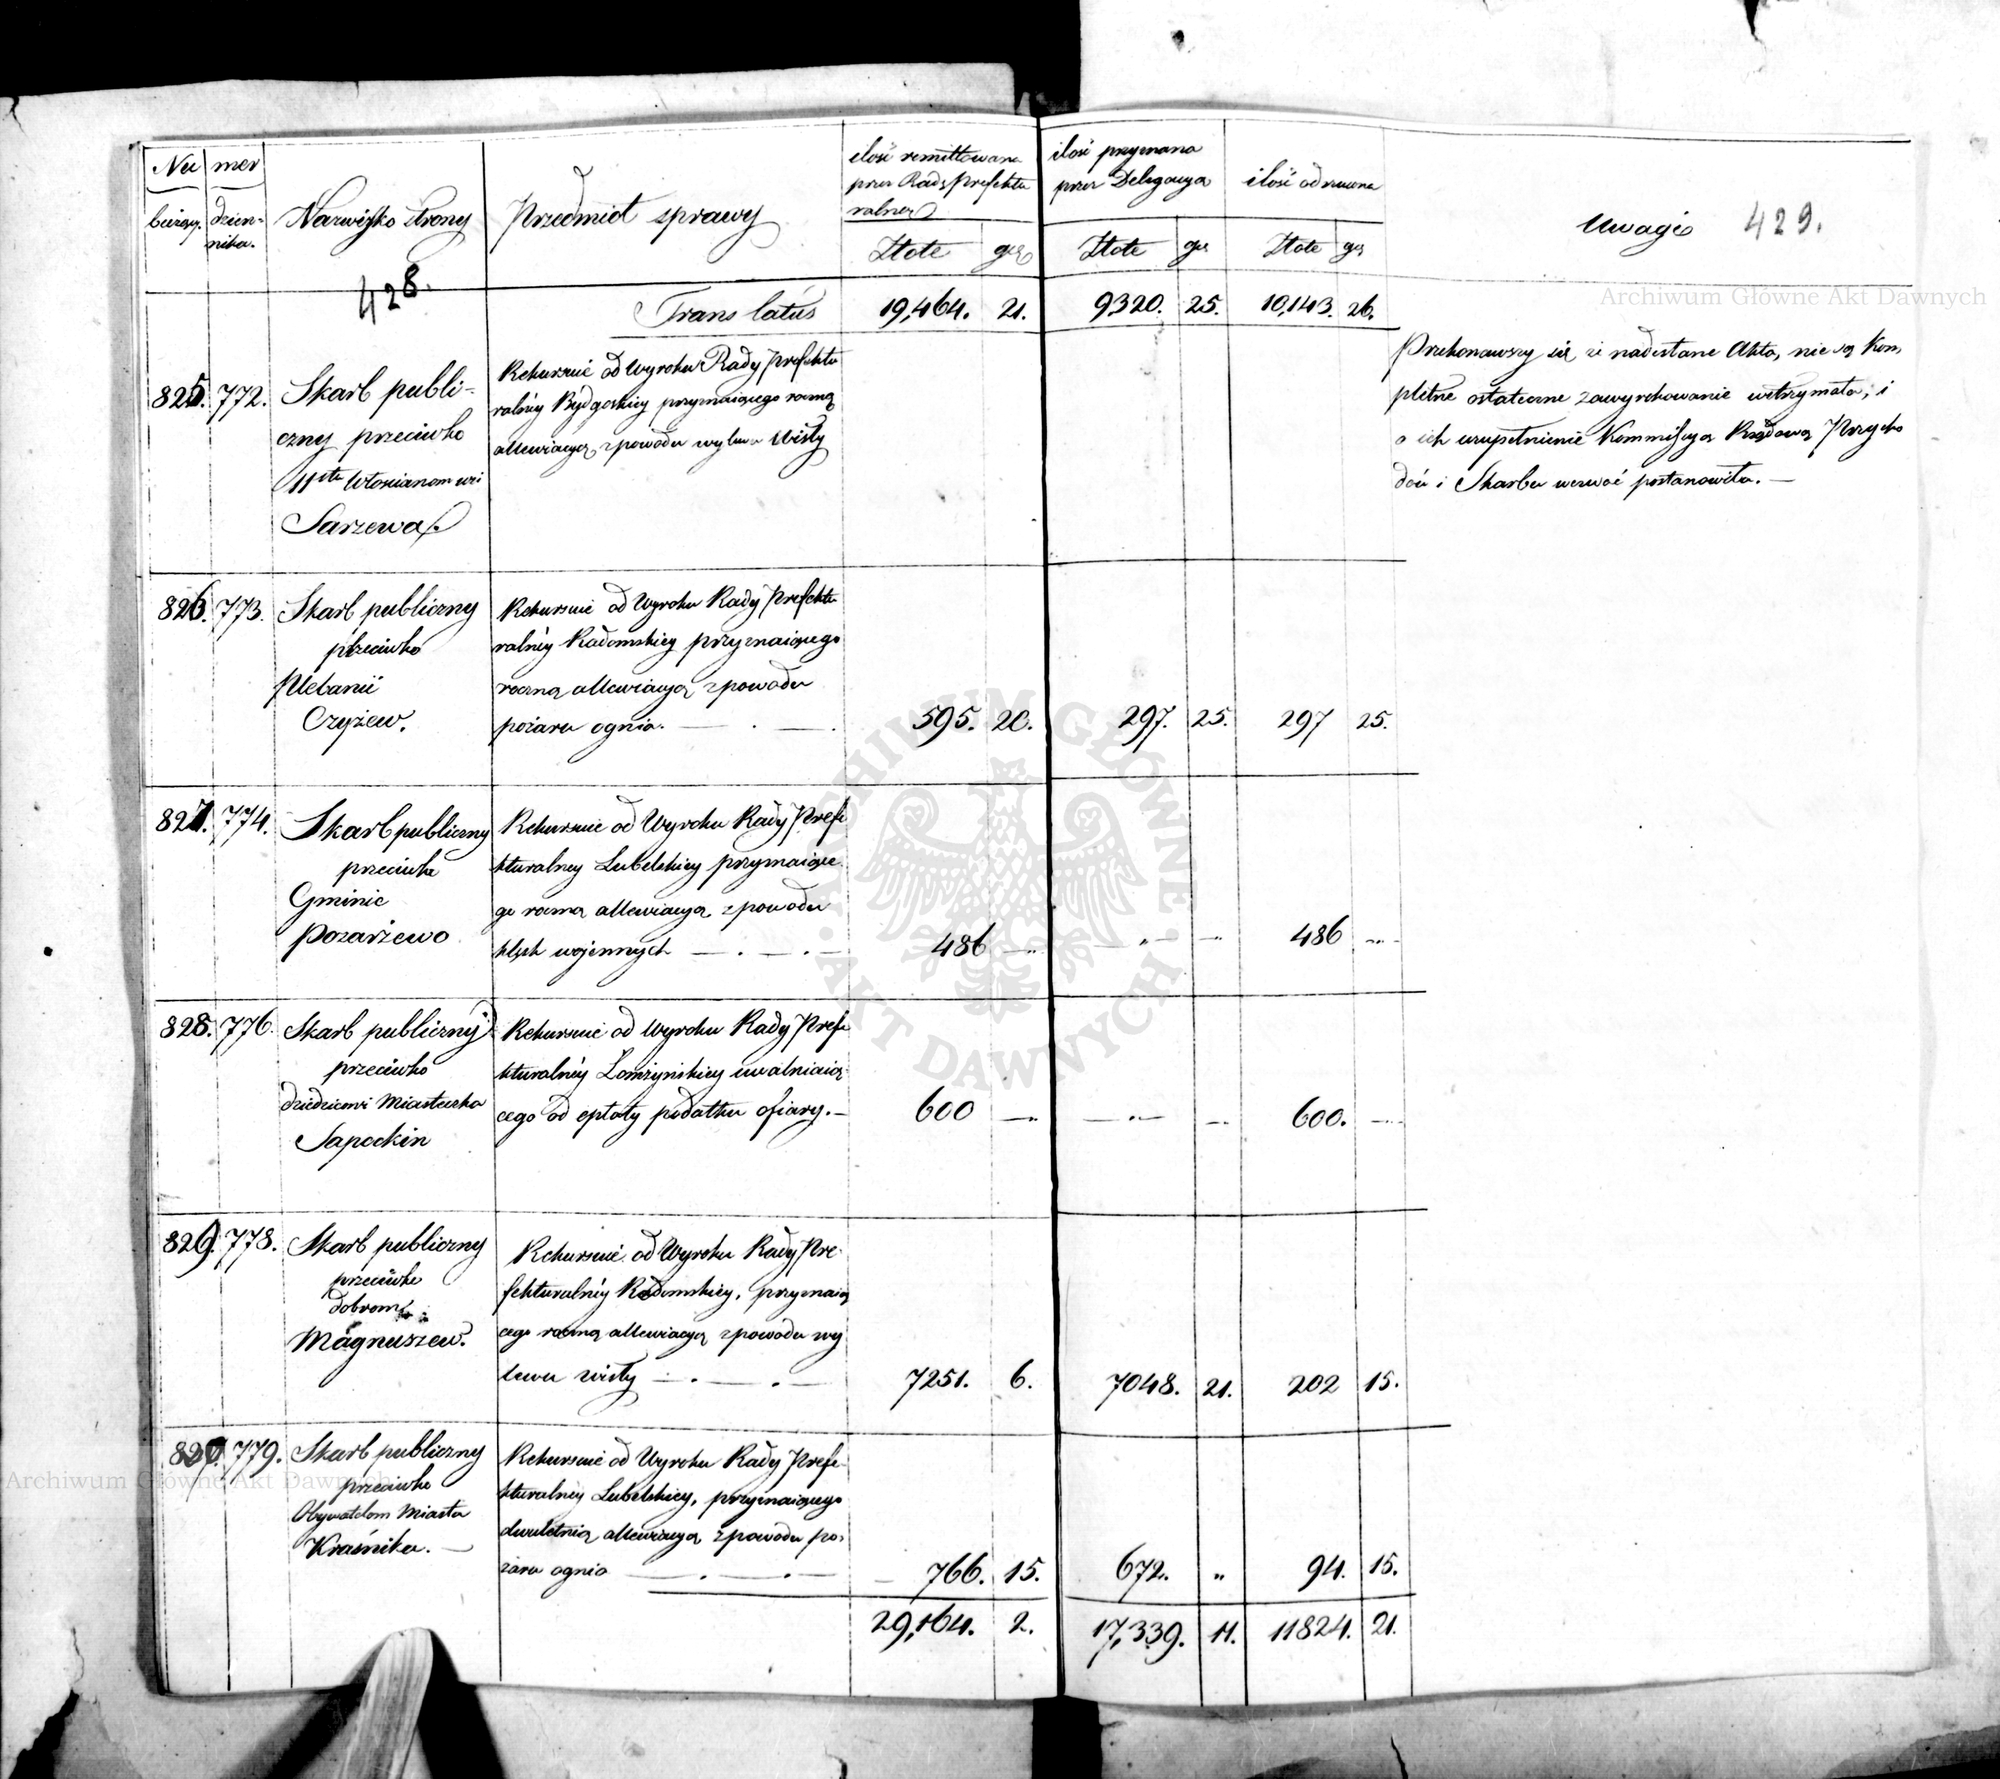 Nu mer
bieżący. dzien-
nika.
Nazwisko strony
Przedmiot sprawy
ilość remittowana
przez Radę Prefektu
ralną
Złote gr.
ilość przyznana
przez Delegacyą
Złote gr
ilość odrzucona
Złote gr
Uwagi 429.
428.
Translatus 19,464. 21. 9320. 25. 10,143. 26.
825. 772. Skarb publi-
czny przeciwko
11stu Włościanom wsi
Sarzewa.
Rekursuie od Wyroku Rady Prefektu
ralnéy Bydgoskiey przyznaiącego roczną
allewiacyą z powodu wylewu Wisły
Przekonawszy się że nadesłane Akta, nie są Kom,
pletne ostateczne zawyrokowanie wstrzymała; i
o ich uzupełnienie Kommissyą Rządową Przycho
dów i Skarbu wezwać postanowiła. —
826. 773. Skarb publiczny
przeciwko
Plebanii
Czyżew.
Rekursuie od Wyroku Rady Prefektu
ralnéy Radomskiey przyznaiącego
roczną allewiacyą z powodu
pożaru ognia. — . —
595. 20. 297. 25. 297 25.
827. 774. Skarb publiczny
przeciwko
Gminie
Pozarzewo
Rekursuie od Wyroku Rady Prefe
kturalney Lubelskiey przyznaiące
go roczną allewiacyą z powodu
klęsk wojennych — . — . —
486 —" —"— —" 486 —"
828. 776. Skarb publiczny
przeciwko
dziedzicowi Miasteczka
Sapockin
Rekursuie od Wyroku Rady Prefe
kturalnéy Łomżyńskiey uwalniaią-
cego od opłaty podatku ofiary. —
600 —" —"— —" 600. —"
829. 778. Skarb publiczny
przeciwko
dobrom
Magnuszew.
Rekursuie od Wyroku Rady Pre-
fekturalnéy Radomskiey, przyznaią
cego roczną allewiacyą z powodu wy
lewu Wisły — . — . —
7251. 6. 7048. 21. 202 15.
830. 779. Skarb publiczny
przeciwko
Obywatelom Miasta
Kraśnika. —
Rekursuie od Wyroku Rady Prefe-
kturalnéy Lubelskiey, przyznaiącego
dwuletnią allewiacyą z powodu po,
żaru ognia — . — . —
766. 15. 672. " 94. 15.
29,164. 2. 17,339. 11. 11824. 21.
Archiwum Główne Akt Dawnych
Archiwum Główne Akt Dawnych
ARCHIWUM GŁÓWNE · AKT DAWNYCH ·